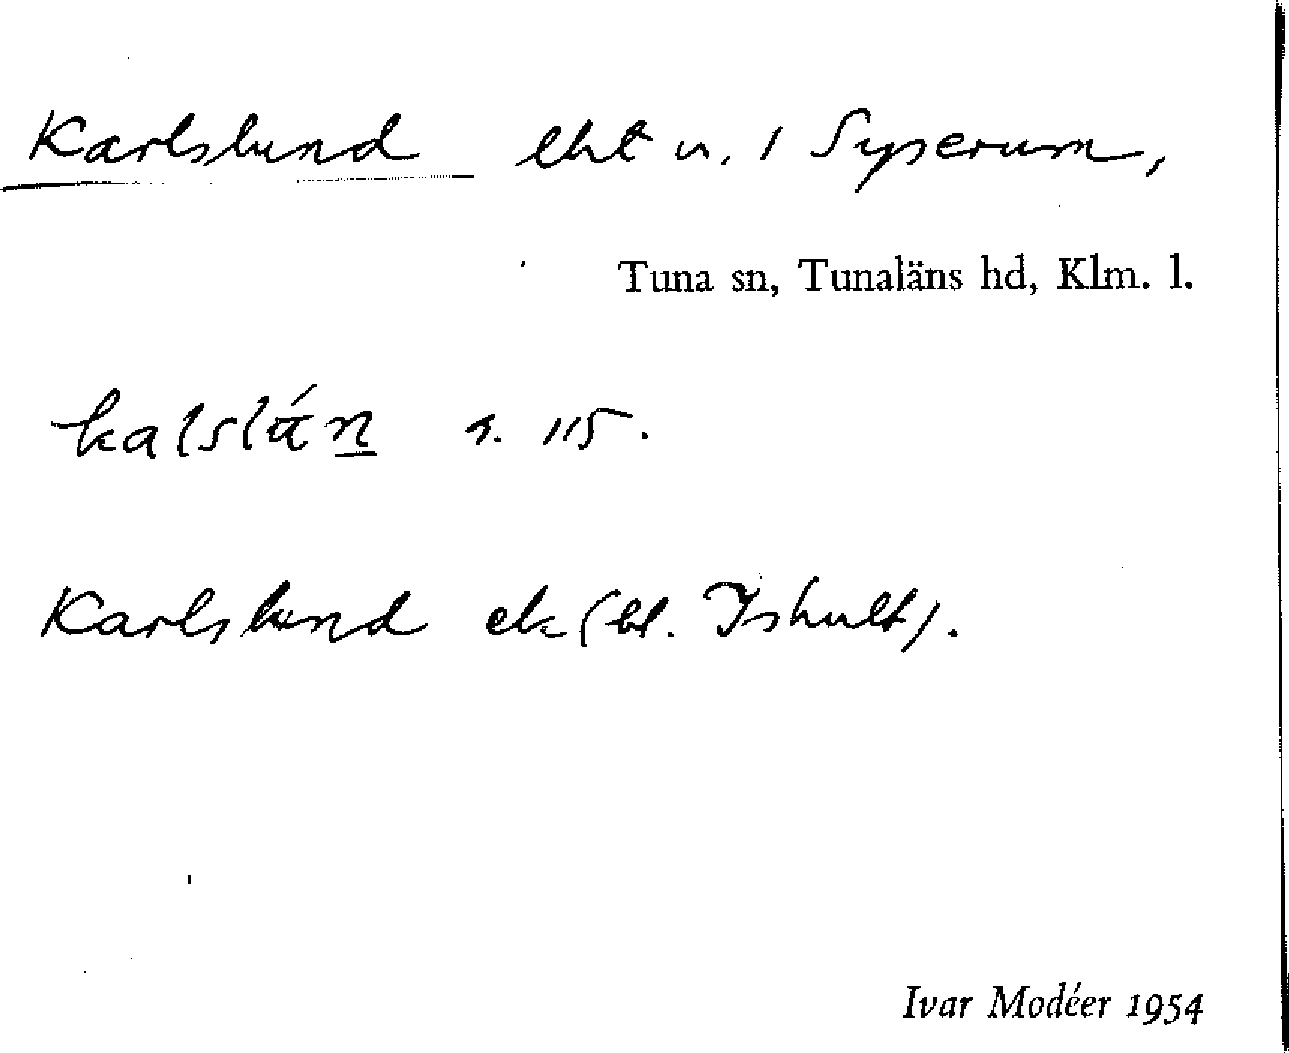 Karlslund lht u. 1 Syserum,
Tuna sn, Tunaläns hd, Klm. l.
s. 115.
Karlslund ek (bl. Ishult).
Ivar Modéer 1954